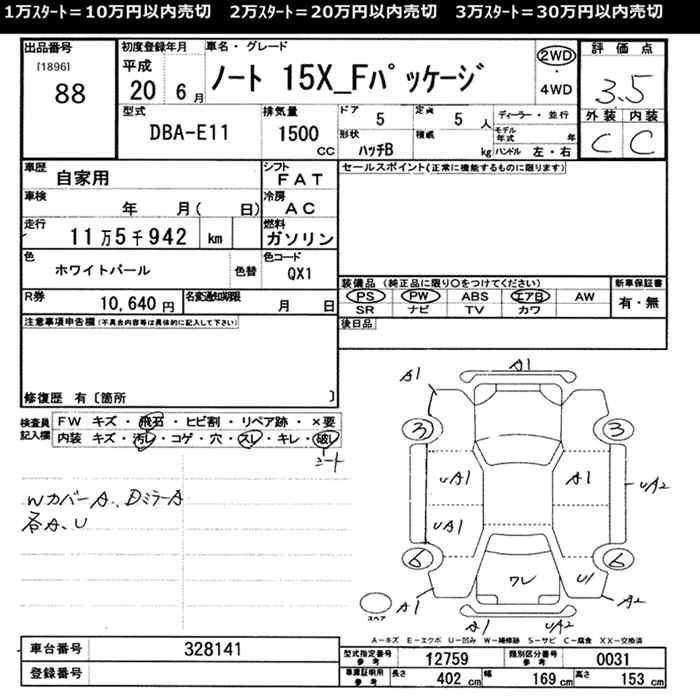 1万スタート＝10万円以内売切　2万スタート＝20万円以内売切　3万スタート＝30万円以内売切
出品番号
[1896]
88
初度登録年月
平成
20 6月
車名・グレード
ノート 15X_Fパッケージ
2WD
・
4WD
評価点
3.5
外装 内装
C C
型式
DBA-E11
排気量
1500
cc
ドア
5
定員
5 人
形状
ハッチB
積載
kg
ディーラー・並行
モデル年式 年
ハンドル 左・右
車歴
自家用
シフト
FAT
車検
年 月( 日)
冷房
AC
走行
11万5千942 km
燃料
ガソリン
色
ホワイトパール
色替
色コード
QX1
R券
10,640円
名変通知期限
月 日
セールスポイント(正常に機能するものに限ります)
装備品(純正品に限り○をつけてください)
PS PW ABS エアB AW
SR ナビ TV カワ
新車保証書
有・無
後日品
注意事項申告欄(不具合内容等は具体的に記入して下さい)
修復歴 有〔箇所 〕
検査員
記入欄
FW キズ・飛石・ヒビ割・リペア跡・×要
内装 キズ・汚レ・コゲ・穴・スレ・キレ・破レ
シート
WカバーA、DミラーA
各A、U
A1
A1
3 3
UA1 A1 UA2
UA1
6 6
ワレ U1
スペア
A1 A1 UA2 A2
A－キズ E－エクボ U－凹み W－補修跡 S－サビ C－腐食 XX－交換済
車台番号 328141
登録番号
型式指定番号
参考
12759
類別区分番号
参考
0031
車庫証明用
参考
長さ 402 cm 幅 169 cm 高さ 153 cm